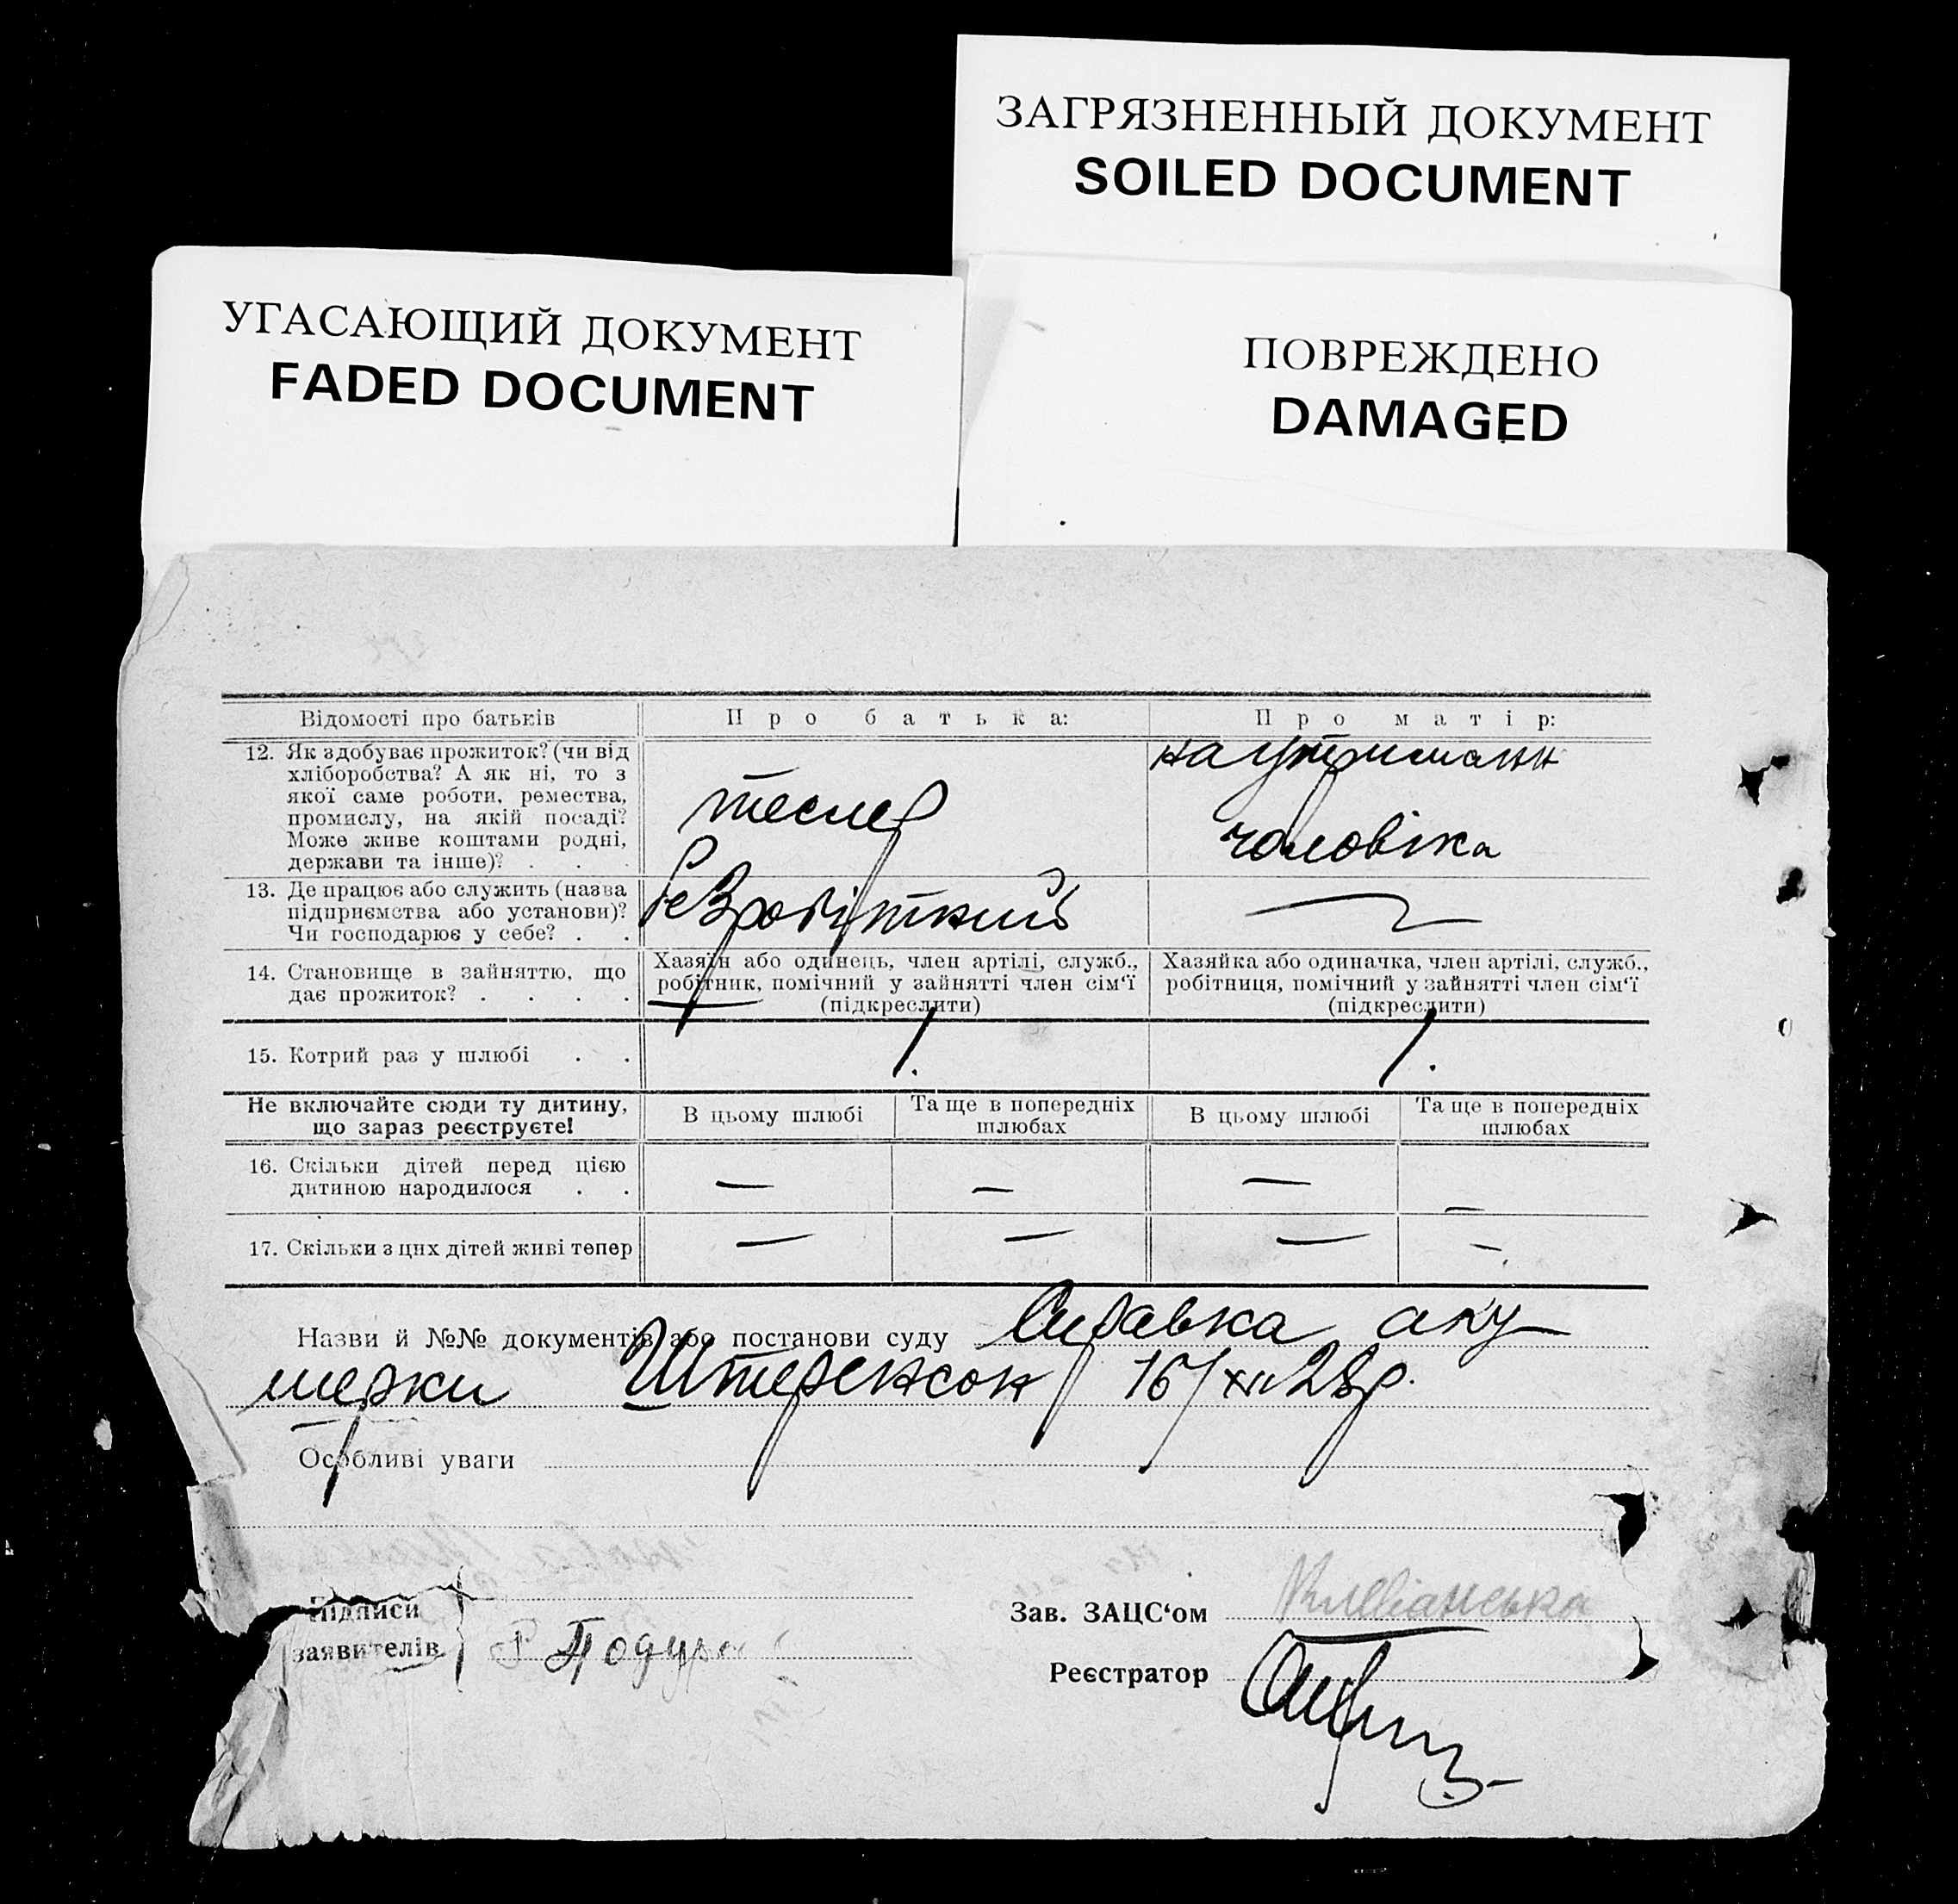 ЗАГРЯЗНЕННЫЙ ДОКУМЕНТ
SOILED DOCUMENT
УГАСАЮЩИЙ ДОКУМЕНТ
FADED DOCUMENT
ПОВРЕЖДЕНО
DAMAGED
Відомості про батьків
Про батька:
Про матір:
12. Як здобуває прожиток? (чи від
хліборобства? А як ні, то з
якої саме роботи, ремества,
промислу, на якій посаді?
Може живе коштами родні,
держави та інше)? . . .
тесляр
на утриманн
чоловіка
13. Де працює або служить (назва
підприємства або установи)?
Чи господарює у себе? . .
безробітний
—
14. Становище в зайняттю, що
дає прожиток? . . . .
Хазяїн або одинець, член артілі, служб.,
робітник, помічний у зайнятті член сім'ї
(підкреслити)
Хазяйка або одиначка, член артілі, служб.,
робітниця, помічний у зайнятті член сім'ї
(підкреслити)
15. Котрий раз у шлюбі . .
1.
1.
Не включайте сюди ту дитину,
що зараз реєструєте!
В цьому шлюбі
Та ще в попередніх
шлюбах
В цьому шлюбі
Та ще в попередніх
шлюбах
16. Скільки дітей перед цією
дитиною народилося . .
— — — —
17. Скільки з цих дітей живі тепер
— — — —
Назви й №№ документів або постанови суду Справка аку
шерки Штеренсон 16/XII 28р.
Особливі уваги
Підписи
заявителів
Подура
Зав. ЗАЦС'ом
Реєстратор